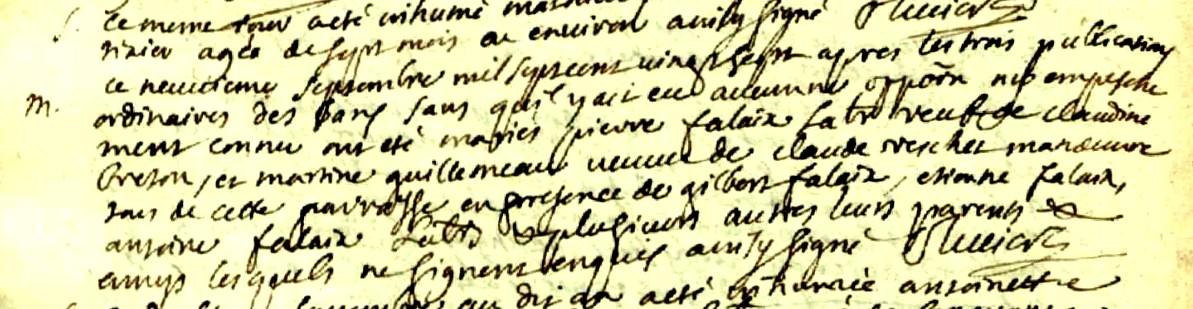 ce meme jour a eté inhumé
agée de sept mois ou environ ainsy signé
ce neuvieme septembre mil sept cent vingt sept apres les trois publications
m. ordinaires des bans sans qu'il y ait eu aucune oppôn ni empesche
ment connu ont été mariés pierre falaix veuf de claudine
breton, et martine guillemeau veuve de claude manœuvre
tous de cette parroisse en presence de gilbert falaix, etienne falaix,
antoine falaix & plusieurs autres leurs parents &
amys lesquels ne signent enquis ainsy signé
dit an a eté inhumée antoinette